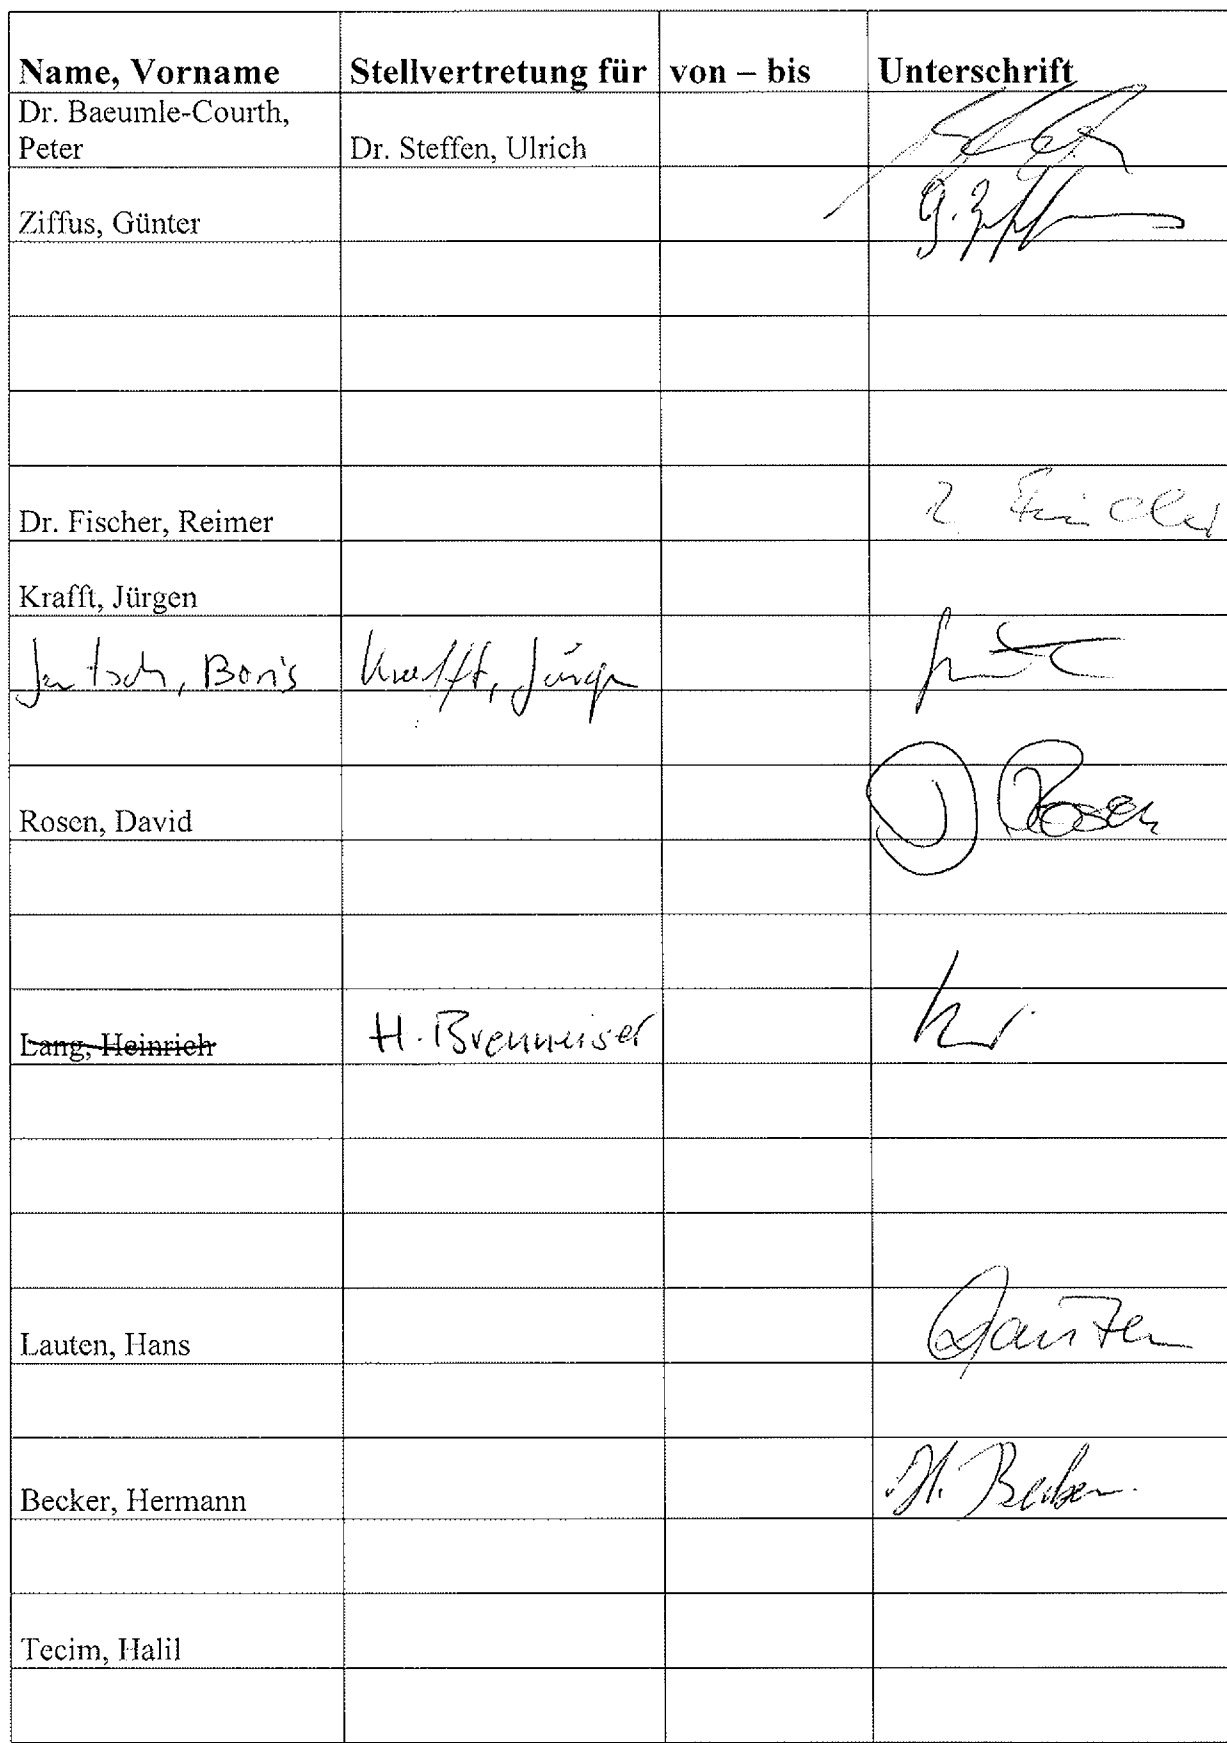 Name, Vorname Stellvertretung für von – bis Unterschrift
Dr. Baeumle-Courth,
Peter Dr. Steffen, Ulrich
Ziffus, Günter G. Ziffus
Dr. Fischer, Reimer
Krafft, Jürgen
Jentsch, Boris Krafft, Jürgen
Rosen, David D Rosen
Lang, Heinrich H. Brenmeiser
Lauten, Hans Lauten
Becker, Hermann H. Becker
Tecim, Halil